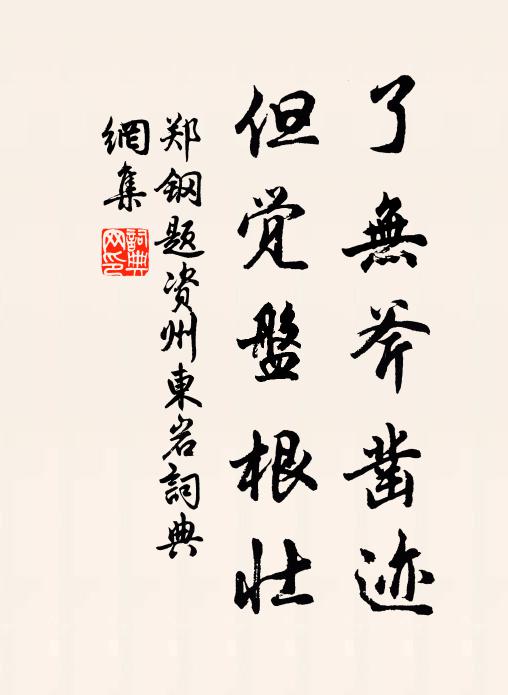 了無斧凿迹
但觉盤根壮
郑鋼题资州東岩詞典
網集
詞典
网印